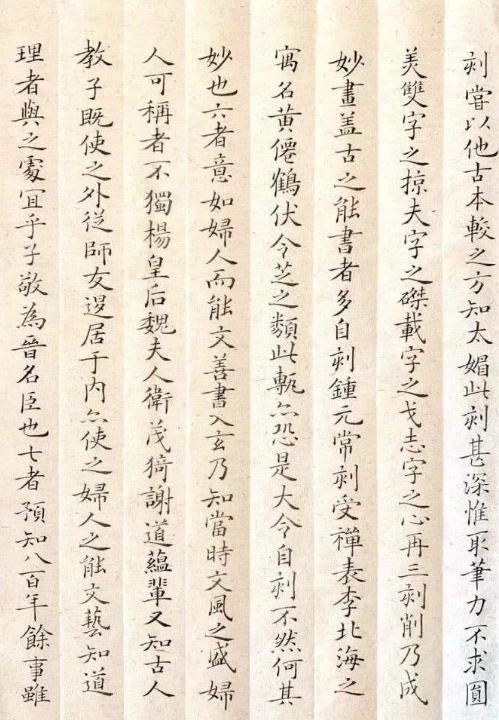 刻當以他古本較之方知太媚此刻甚深惟取筆力不求圓
美雙字之掠夫字之磔載字之戈志字之心再三刻削乃成
妙畫盖古之能書者多自刻鍾元常刻受禪表李北海之
寓名黄僊鶴伏令芝之類此甎亦恐是大令自刻不然何其
妙也六者意如婦人而能文善書入玄乃知當時文風之盛婦
人可稱者不獨楊皇后魏夫人衛茂猗謝道蘊輩又知古人
教子既使之外從師友退居于内亦使之婦人之能文藝知道
理者與之處宜乎子敬為晉名臣也七者預知八百年餘事雖